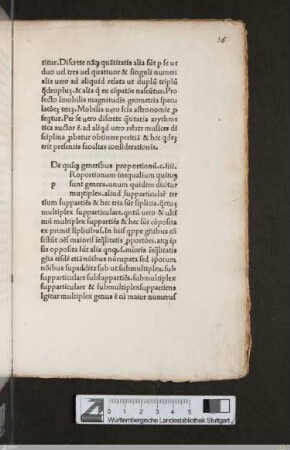 36
titur. Discrete nāq; quātitatis alia sūt p se ut
duo uel tres uel quattuor & singuli numeri
alia uero ad aliquid relata ut duplū triplū
q̄druplū, & alia q̄ ex cōpatōe nascūtur. Pro
fecto imobilis magnitudīs geometria specu
latōeʒ tenʒ. Mobilis uero scīa astronomie p
seqtur. Per se uero discrete q̄titatis arythme
tica auctor ē. ad aliqd uero relate musices di
sciplina ꝓbatur obtinere peritiā & hec qdeʒ
erit presentis facultas considerationis.
De quiq; generibus proportionū. c. iiii.
Roportionum inequalium quinq;
p sunt genera. unum quidem dicitur
multiplex. aliud supparticulare ter
tium suppartiēs & hec tria sūt siplicia. q̄rtuʒ
multiplex supparticulare. qntū uero & ulti
mū multiplex suppartiēs & hec sūt cōposita
ex primis siplicibus. In hiis q̄ppe gn̄ibus cō
sistūt oēs maioris iēq̄litatis ꝓportōes. atq; ip
sis opposita sūt alia qnq; s. minoris iēq̄litatis
gn̄a eisdē etiā nōibus nūcupata sed iporum
nōibus supaddita sub ut submultiplex. sub
supparticulare subsuppartiēs. submultiplex
supparticulare & submultiplex suppartiens
Igitur multiplex genus ē cū maior numerus
cm
Württembergische Landesbibliothek Stuttgart